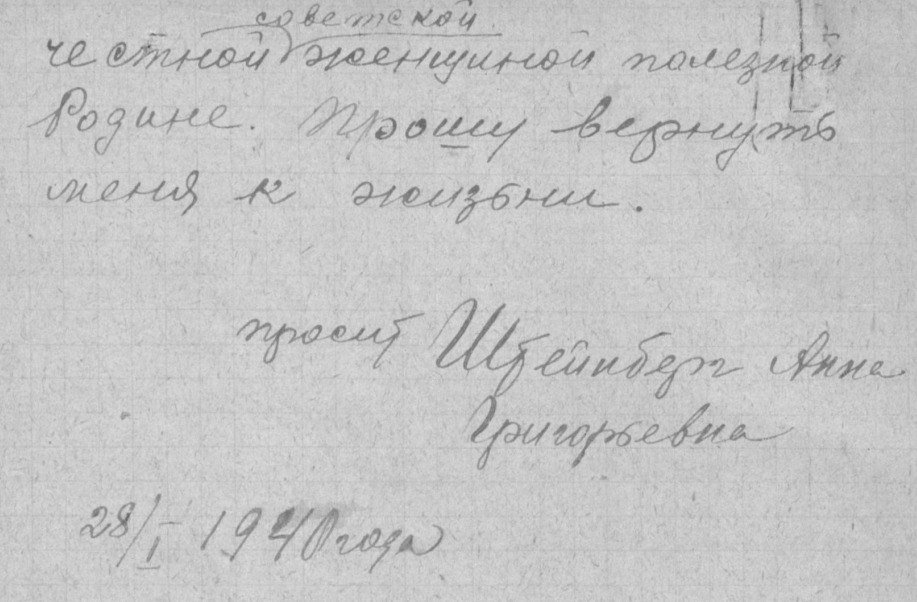 советской
честной женщиной полезной
Родине. Прошу вернуть
меня к жизьни.
просит Штейнберг Анна
Григорьевна
28/I 1940 года